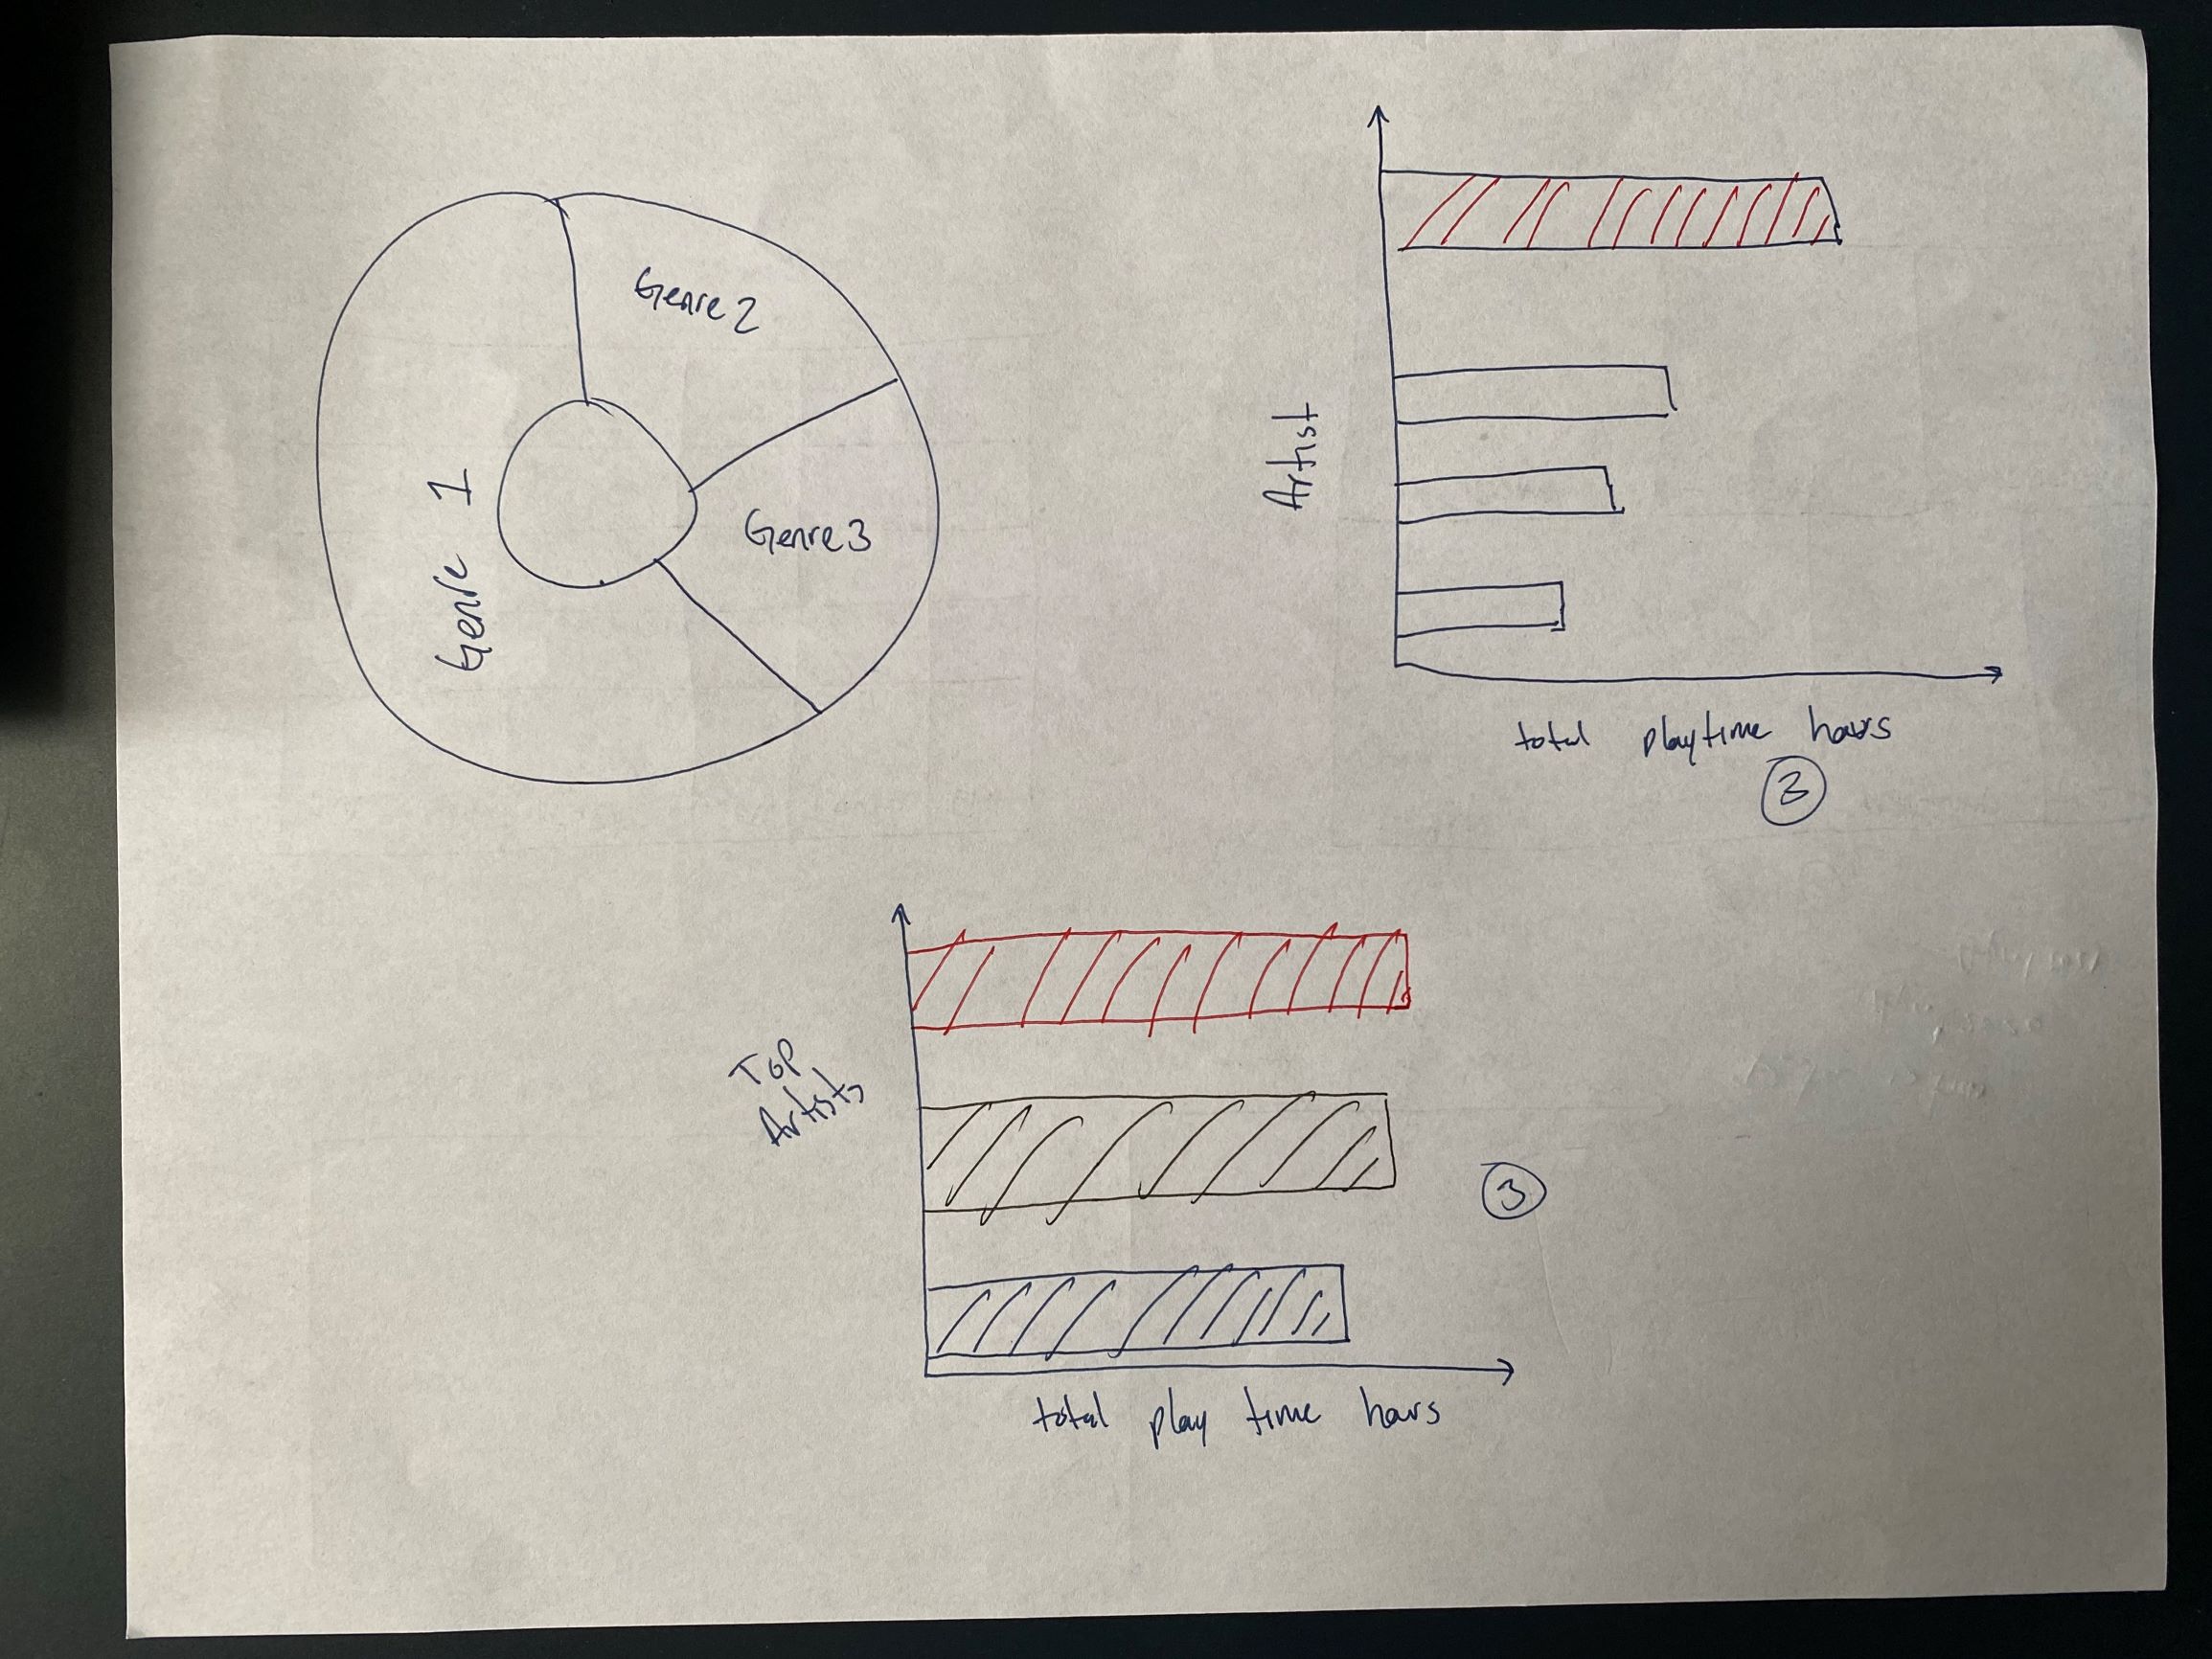 Genre 2
Genre 1
Genre 3
Artist
total playtime hours
3
Top
Artists
3
total play time hours